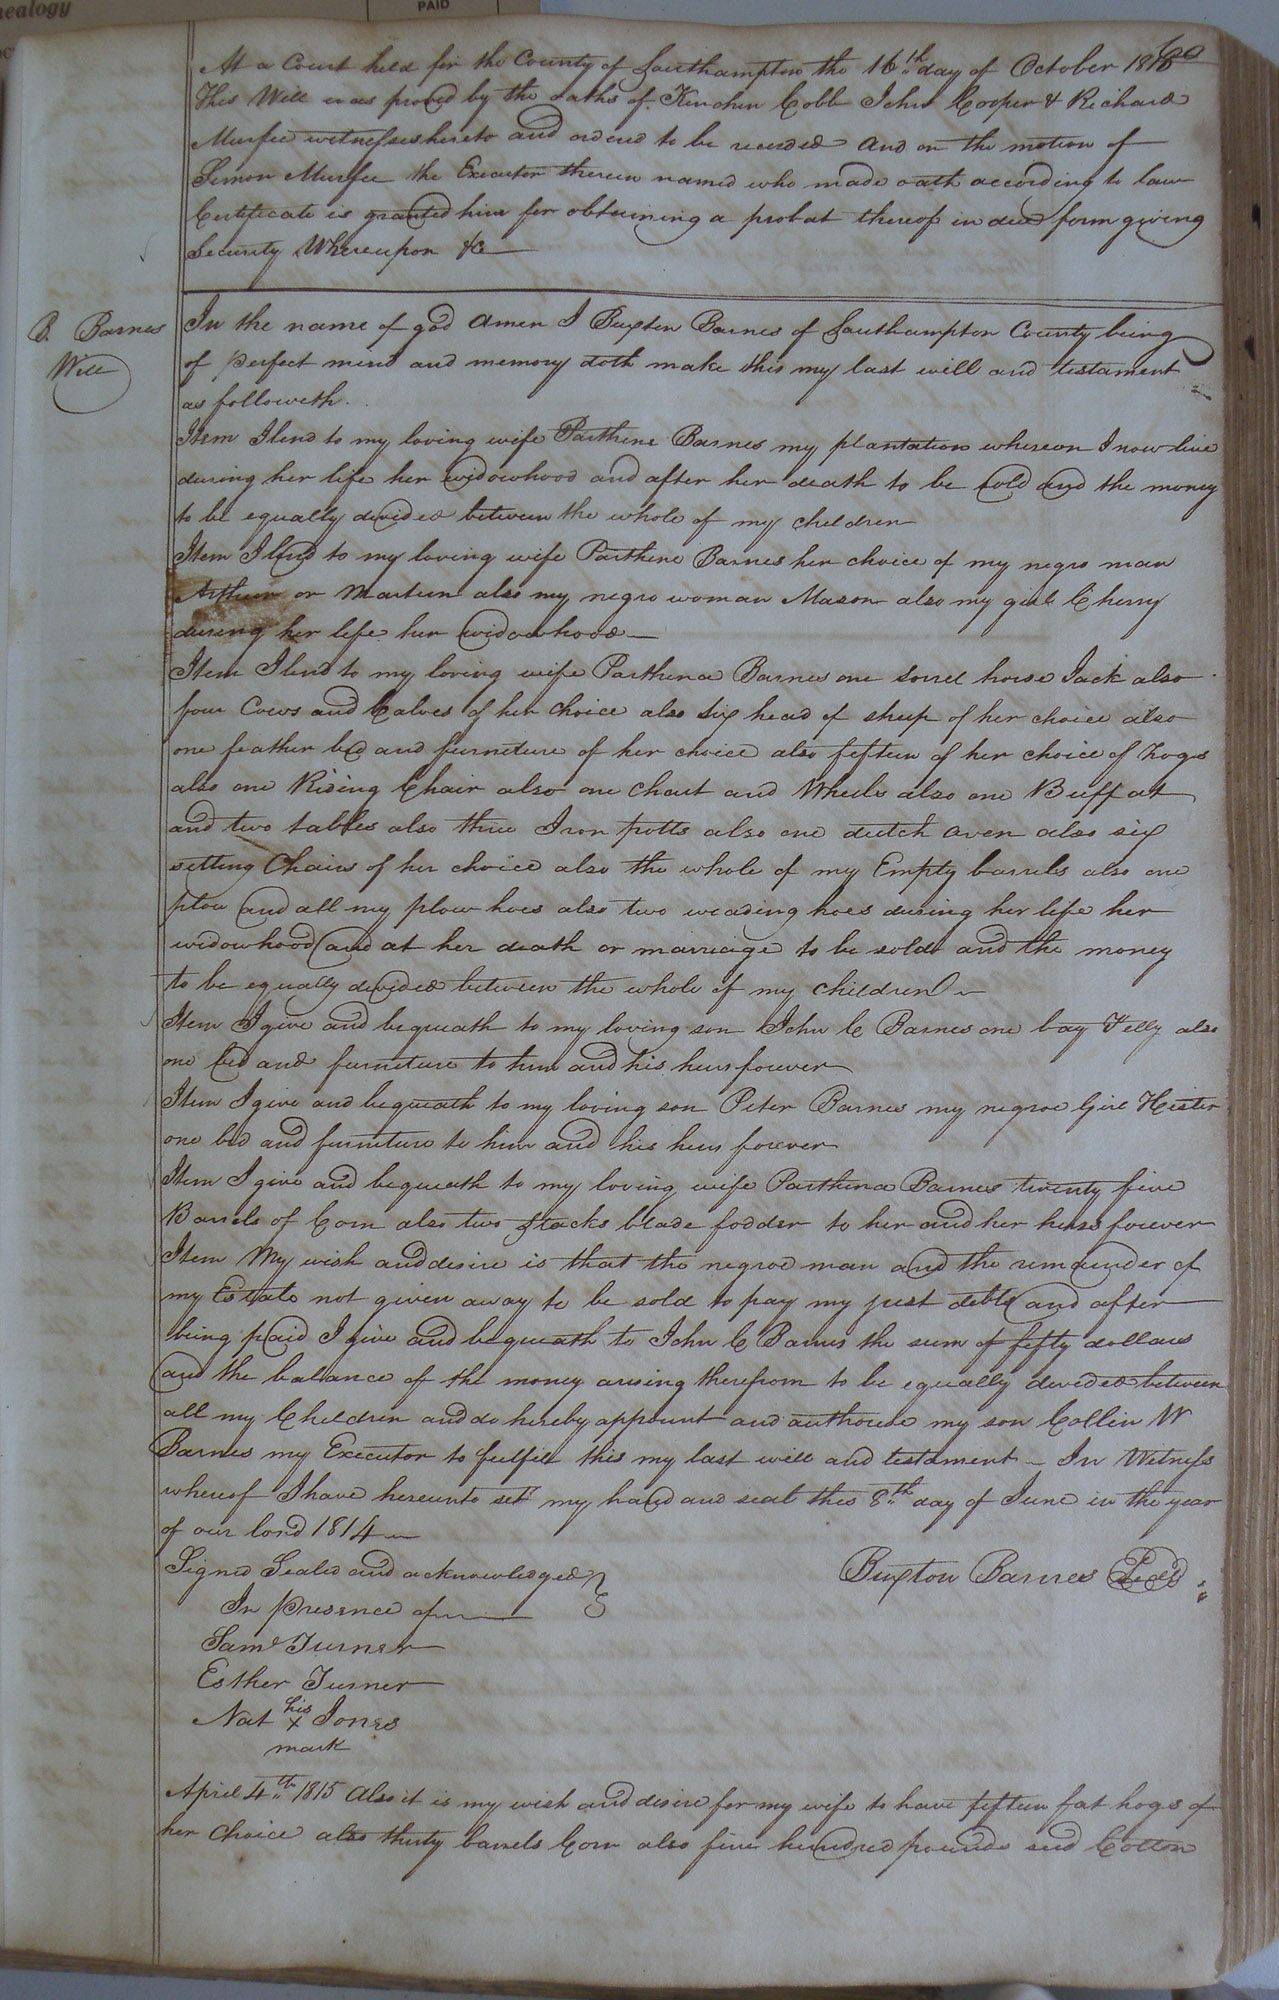 nealogy
PAID
60
At a Court held for the County of Southampton the 16th day of October 1815
This Will was proved by the oaths of Kinchin Cobb John Cooper & Richard
Murfee witnesses hereto and ordered to be recorded And on the motion of
Simon Murfee the Executor therein named who made oath according to law
Certificate is granted him for obtaining a probat thereof in due form giving
Security Whereupon &c
B. Barnes
Will
In the name of god Amen I Buxton Barnes of Southampton County being
of perfect mind and memory doth make this my last will and testament
as followeth.
Item I lend to my loving wife Parthene Barnes my plantation whereon I now live
during her life her widowhood and after her death to be sold and the money
to be equally divided between the whole of my children
Item I lend to my loving wife Parthene Barnes her choice of my negro man
Arthur or Martin also my negro woman Mason also my girl Cherry
during her life her widowhood
Item I lend to my loving wife Parthena Barnes one sorrel horse Jack also
four Cows and Calves of her choice also six head of sheep of her choice also
one feather bed and furneture of her choice also fifteen of her choice of hogs
also one Riding Chair also one Chart and Wheels also one Buffat
and two tables also three Iron potts also one dutch oven also six
setting Chairs of her choice also the whole of my Empty barrels also one
plow and all my plow hoes also two weading hoes during her life her
widowhood and at her death or marriage to be sold and the money
to be equally divided between the whole of my children
Item I give and bequeath to my loving son John C Barnes one bay Filly also
one bed and furneture to him and his heirs forever
Item I give and bequeath to my loving son Peter Barnes my negroe Girl Hester
one bed and furniture to him and his heirs forever
Item I give and bequeath to my loving wife Parthena Barnes twenty five
Barrels of Corn also two stacks blade fodder to her and her heirs forever
Item My wish and desire is that the negroe man and the remainder of
my Estate not given away to be sold to pay my just debts and after
being paid I give and bequeath to John C Barnes the sum of fifty dollars
and the balance of the money arising therefrom to be equally devided between
all my Children and do hereby appoint and authorise my son Collin W
Barnes my Executor to fulfill this my last will and testament In Witness
whereof I have hereunto set my hand and seal this 8th day of June in the year
of our lord 1814
Signed Sealed and acknowledged
Buxton Barnes Seal
In presence of
Saml Turner
Esther Turner
his
Nat x Jones
mark
April 4th 1815 Also it is my wish and desire for my wife to have fifteen fat hogs of
her choice also thirty barrels Corn also five hundred pounds seed Cotton